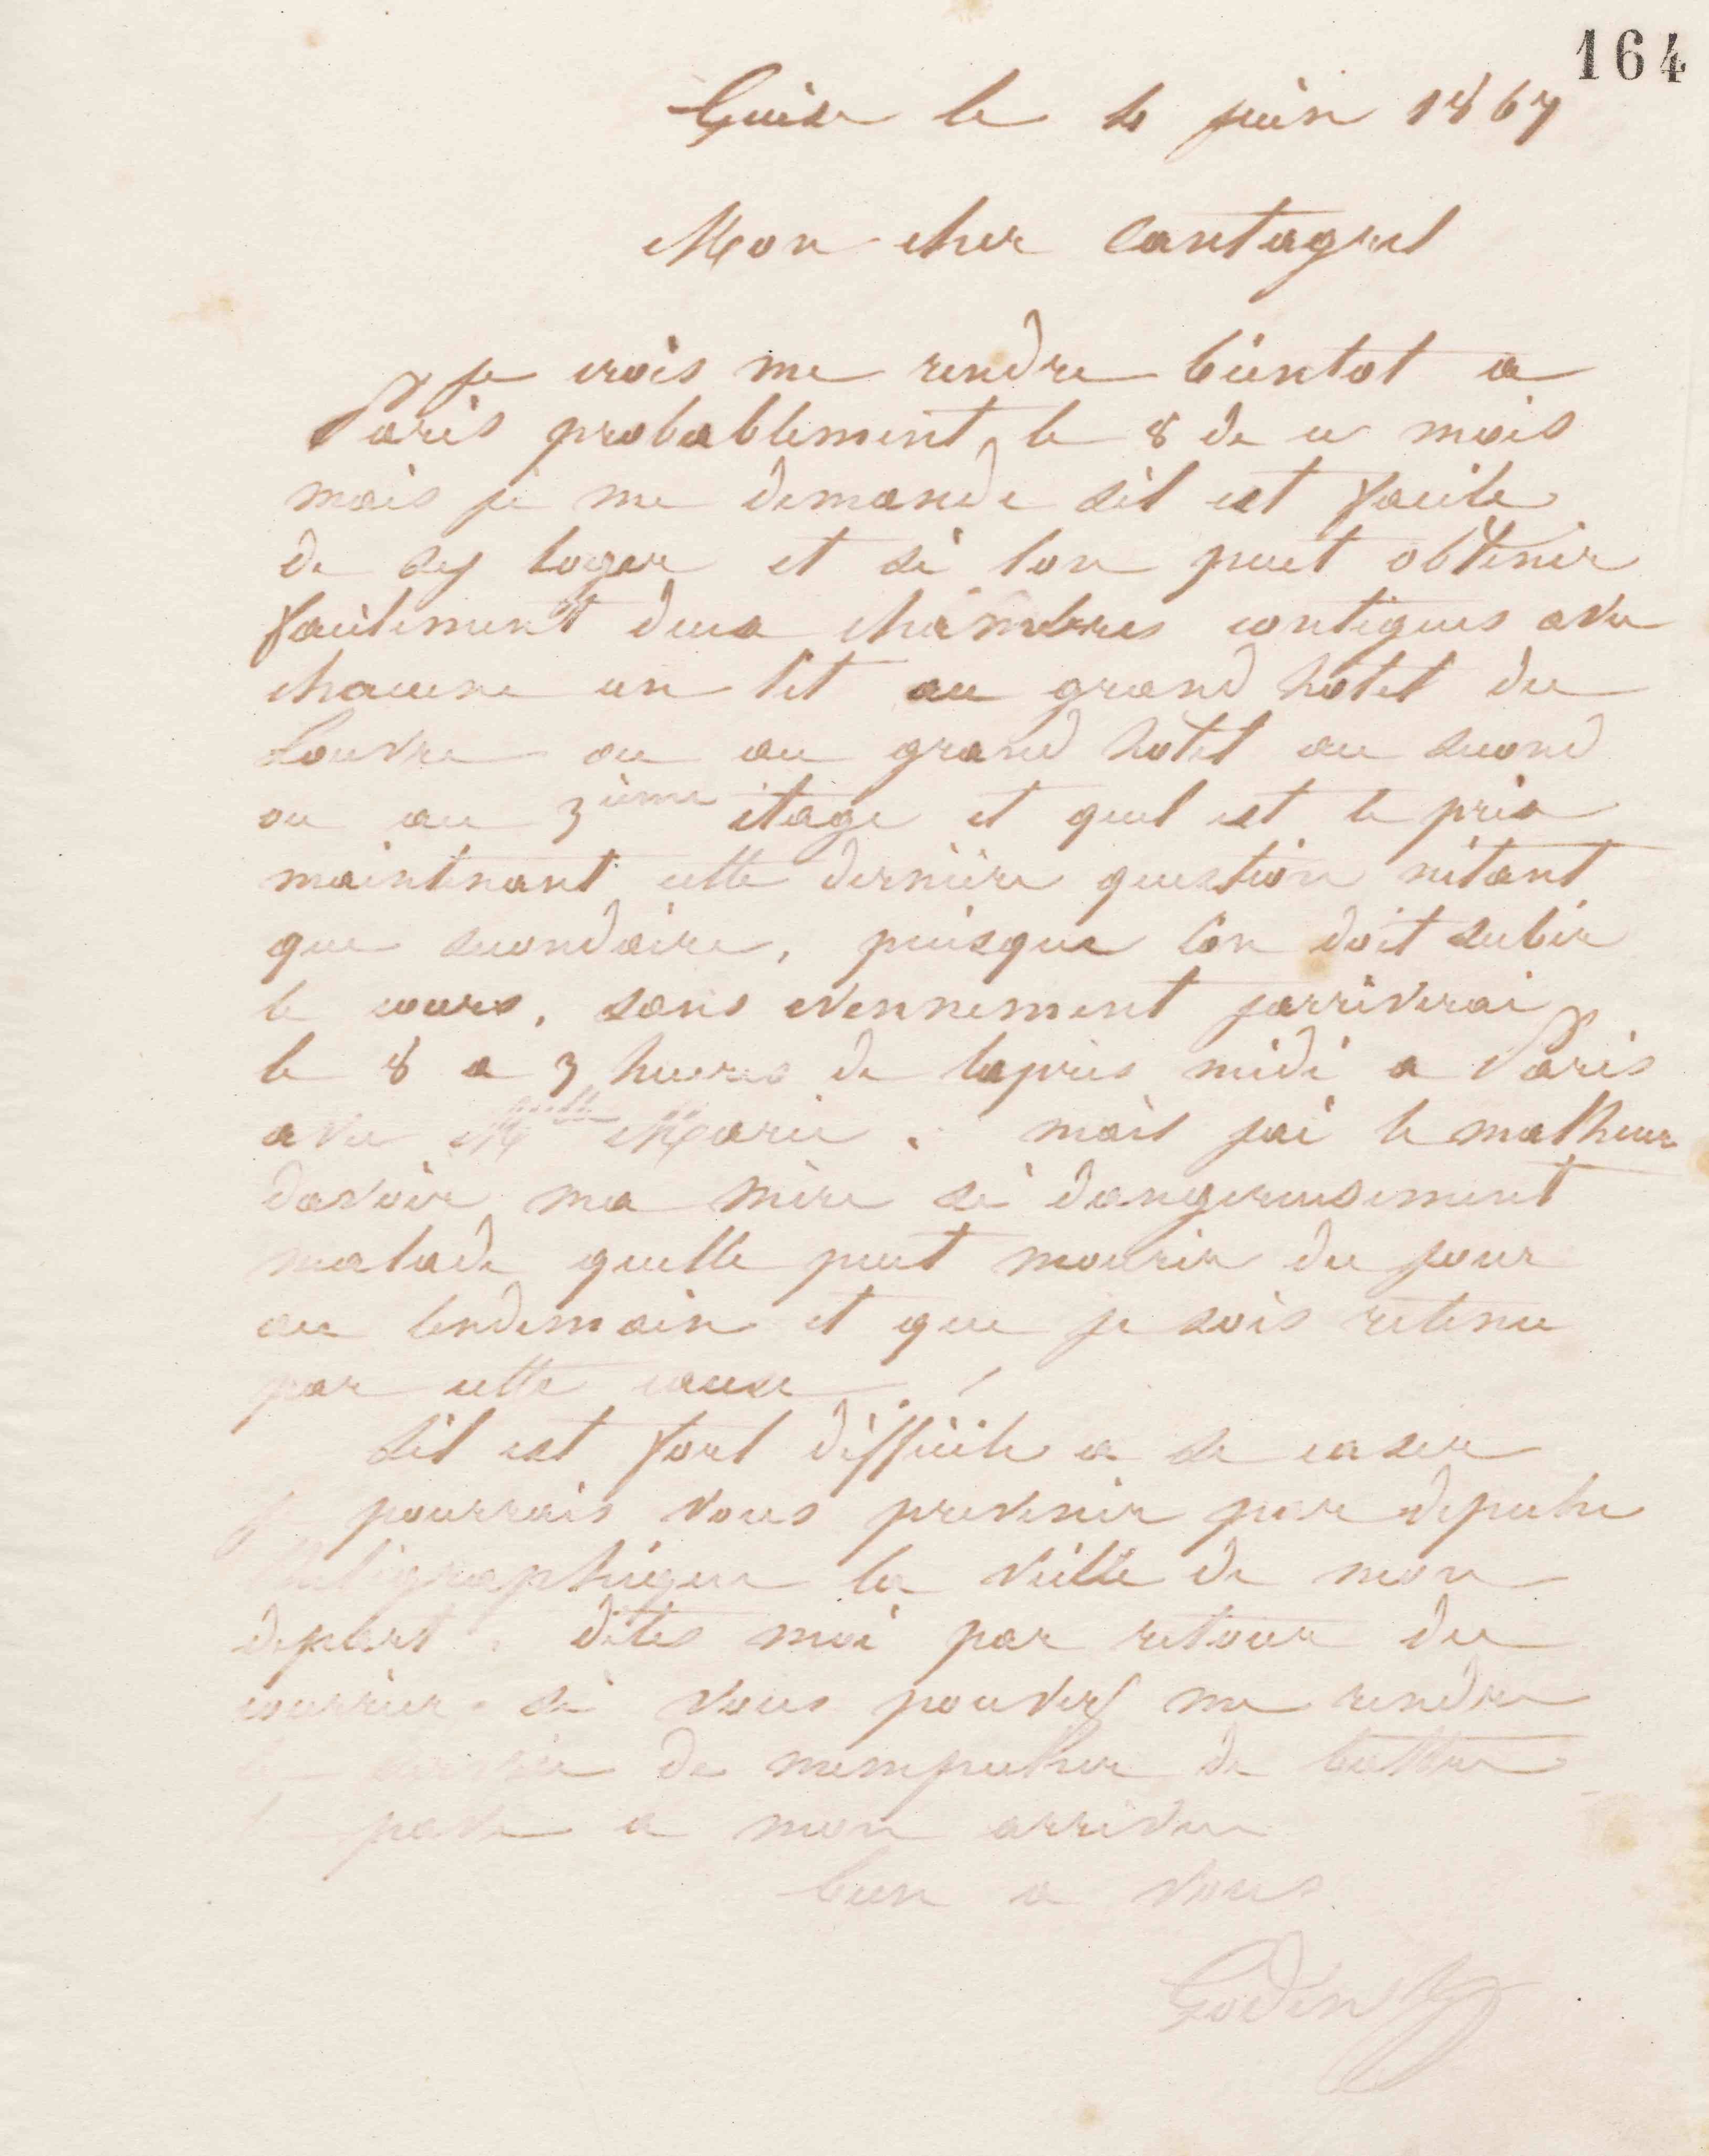 164
Guise le 4 juin 1867
Mon cher Cantagrel
je crois me rendre bientot a
Paris probablement le 8 de ce mois
mais je me demande sil est facile
de sy loger et si lon peut obtenir
facilement deux chambres contigues avec
chacune un lit au grand hotel du
Louvre ou au grand hotel au second
ou au 3ième étage et quel est le prix
maintenant cette dernière question nétant
que secondaire, puisque lon doit subir
le cours, sans evennement jarriverai
le 8 a 3 heures de laprès midi a Paris
avec Melle Marie. mais jai le malheur
davoir ma mère si dangereusement
malade quelle peut mourir du jour
au lendemain et que je sois retenu
par cette cause.
Sil est fort difficile a se caser
je pourrais vous prevenir par depeche
télégraphique la veille de mon
depart. dites moi par retour du
courrier si vous pouvez me rendre
le service de mempecher de battre
le pavé a mon arrivée
bien a vous
Godin